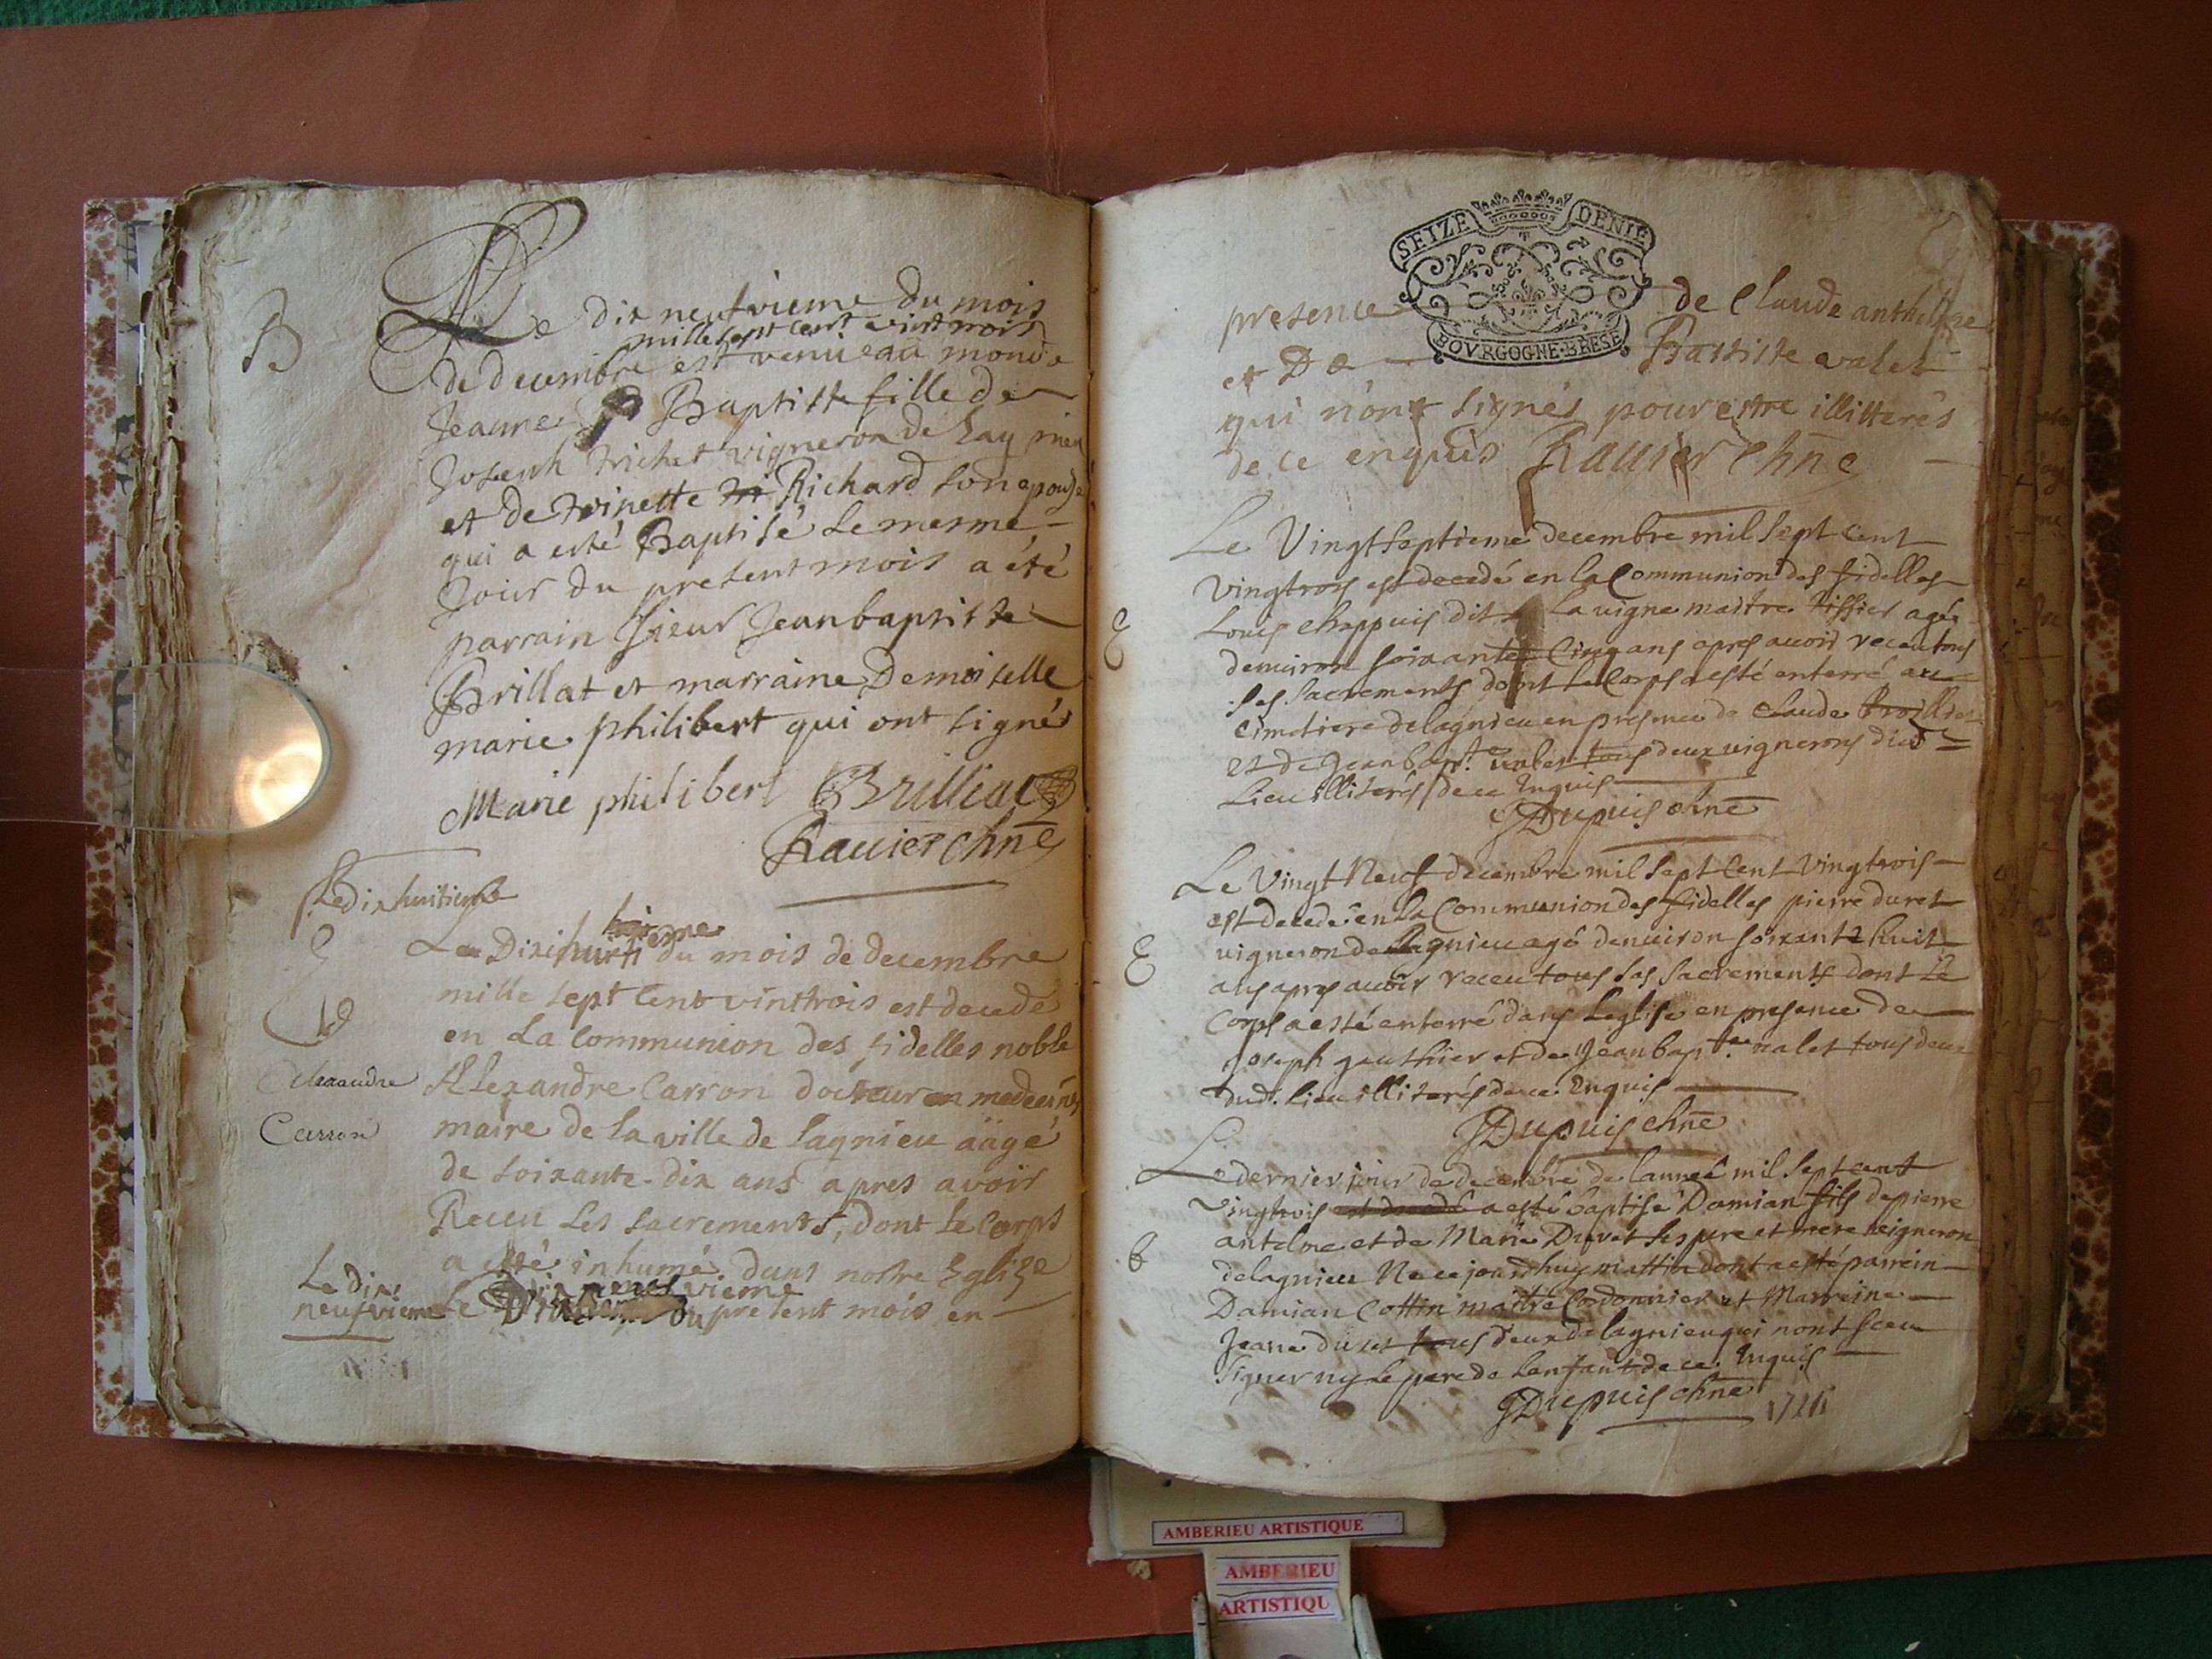 B
Le dix neufvieme du mois
mille sept cent vint trois
de decembre est venu eau monde
Jeanne Baptiste fille de
Joseph trichet vigneron de Lagnieu
et de toinette Richard son epouse
qui a esté Baptisé Le mesme
Jour du present mois a été
parrain Sieur Jean baptiste
Brillat et marraine Demoiselle
marie philibert qui ont signé
Marie philibert Brilliat
Ravier chne
Le dix huitieme
Le Dixhuitieme du mois de decembre
mille sept Cent vintrois est decedé
en La Communion des fidelles noble
Alexandre
Alexandre Carron docteur en medecine
Carron
maire de la ville de Lagnieu äâgé
de soixante-dix ans apres avoir
Receu Les Sacrements, dont le Corps
a esté inhumé dans nostre Eglise
Le dix
neufvieme
Le Dix neufvieme du present mois en
SEIZE DENIE
BOVRGOGNE·BRESE
presence de Claude anthelme
et De Battiste valet
qui n'ont signés pour estre illitterés
de ce enquis Ravier chne
Le Vingt septieme decembre mil sept Cent
Vingtrois est decedé en la Communion des fidelles
E
Louis Chappuis dit La vigne maitre tissier agé
denviron soixante Cinq ans apres avoir receu tous
ses sacrements dont le Corps a esté enterré au
Cimetiere de lagnieu en presence de Claude
et de Jean bapt. valet tous deux vignerons dud
Lieu illiterés de ce Enquis
Dupuis chne
Le Vingt Neuf decembre mil sept Cent Vingtrois
est decedé en la Communion des fidelles pierre duret
E
vigneron de lagnieu agé denviron soixante huit
ans apres avoir receu tous ses sacrements dont Le
Corps a esté enterré dans Leglise en presence de
Joseph gauthier et de Jean bapte valet tous deux
dud. Lieu illiterés de ce Enquis
Dupuis chne
Le dernier jour de decembre de lannée mil sept cent
vingtrois est decedé a esté baptisé Damian fils de pierre
antelme et de Marie Duret ses pere et mere veigneron
B
de lagnieu Ne ce jourdhuy mattin dont a esté parrein
Damian Cottin maitre Cordonnier et Marreine
Jeane duret tous deux de lagnieu qui nont sceu
signer ny le pere de lenfant de ce Enquis
Dupuis chne
AMBERIEU ARTISTIQUE
AMBERIEU
ARTISTIQU